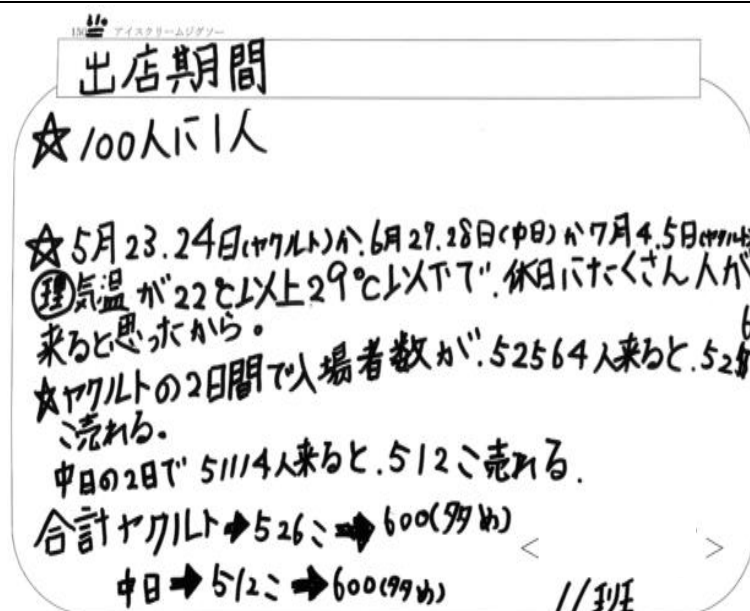 アイスクリームジグソー
出店期間
☆100人に1人
☆5月23.24日(ヤクルト)か.6月27.28日(中日)か7月4.5日(ヤクルト
理気温が22℃以上29℃以下で.休日にたくさん人が
来ると思ったから。
☆ヤクルトの2日間で入場者数が.52564人来ると.526
こ売れる。
中日の2日で51114人来ると.512こ売れる.
合計ヤクルト➡526こ➡600(多め)
中日➡512こ➡600(多め)
< >
11班